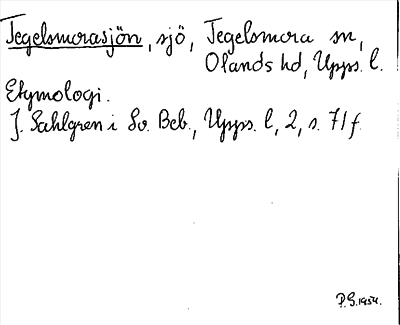 Tegelsmorasjön, sjö, Tegelsmora sn,
Olands hd, Upps. l.
Etymologi.
J. Sahlgren i Sv. Beb., Upps. l, 2, s. 71 f.
P. G. 1954.